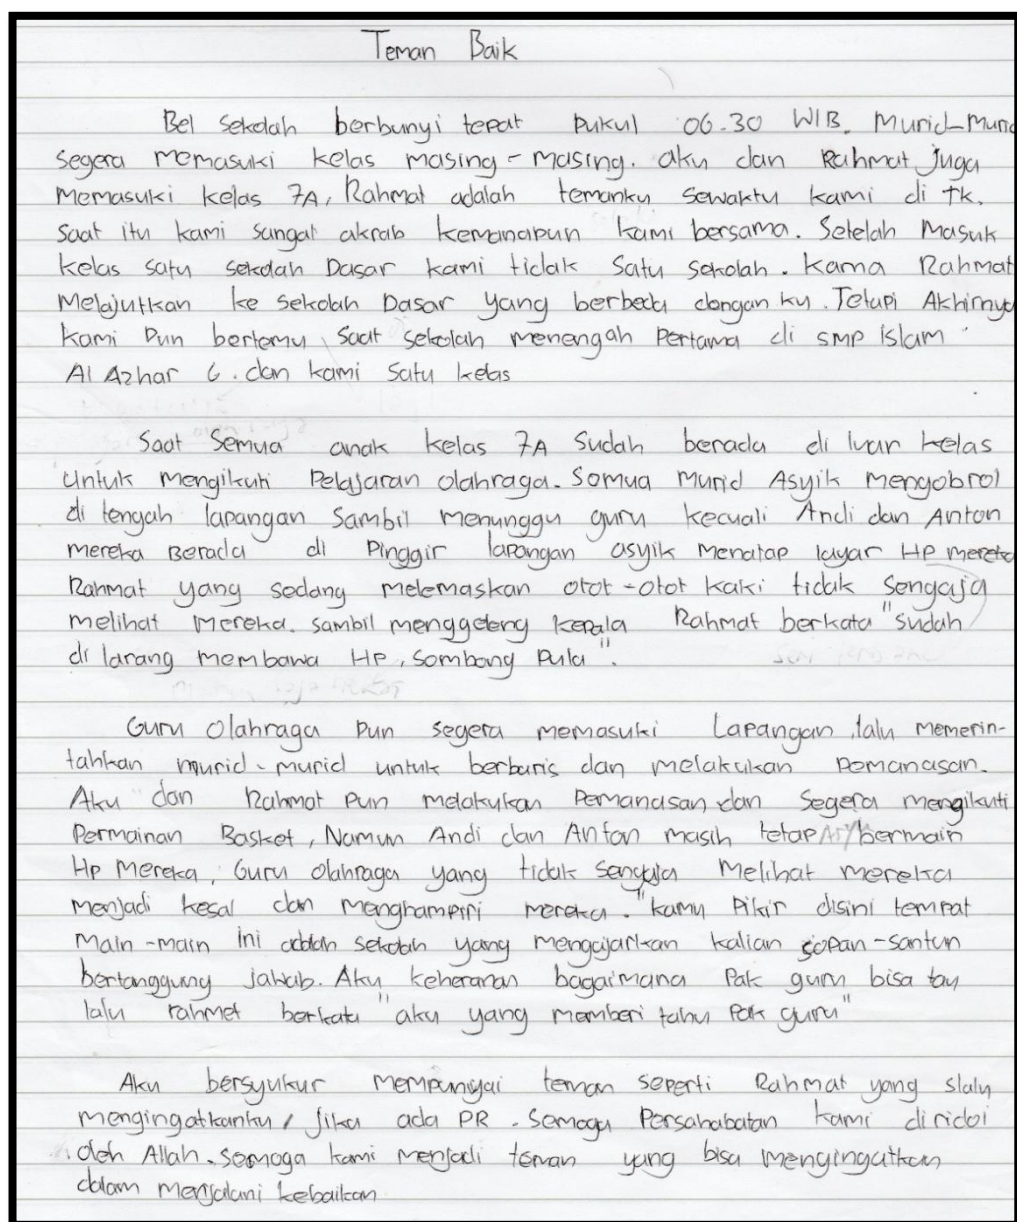 Teman Baik
Bel sekolah berbunyi tepat pukul 06.30 WIB. Murid-Murid
segera memasuki kelas masing-masing. aku dan Rahmat juga
Memasuki kelas 7A, Rahmat adalah temanku sewaktu kami di tk.
Saat itu kami sangat akrab kemanapun kami bersama. Setelah Masuk
kelas satu sekolah Dasar kami tidak Satu sekolah. Karna Rahmat
Melajutkan ke sekolah Dasar yang berbeda dengan ku. Tetapi Akhirnya
kami Pun bertemu, saat sekolah menengah Pertama di smp Islam
Al Azhar 6. dan kami Satu kelas
Saat Semua anak kelas 7A Sudah berada di luar kelas
Untuk mengikuti Pelajaran olahraga. Semua Murid Asyik Mengobrol
di tengah lapangan Sambil menunggu guru kecuali Andi dan Anton
mereka Berada di Pinggir lapangan asyik Menatap layar HP mereka
Rahmat yang sedang melemaskan otot-otot kaki tidak sengaja
melihat mereka. sambil menggeleng kepala Rahmat berkata "sudah
di larang membawa HP, Sombong Pula".
Guru Olahraga Pun segera memasuki Lapangan, lalu memerin-
tahkan murid-murid untuk berbaris dan melakukan Pemanasan.
Aku dan Rahmat Pun melakukan Pemanasan dan Segera mengikuti
Permainan Basket, Namun Andi dan Anton masih tetap bermain
HP Mereka, Guru Olahraga yang tidak sengaja Melihat mereka
menjadi kesal dan menghampiri mereka. "kamu Pikir disini tempat
Main-main ini adalah sekolah yang mengajarkan kalian sopan-santun
bertanggung jawab. Aku keheranan bagaimana Pak guru bisa tau
lalu rahmet berkata "aku yang memberi tahu Pak guru"
Aku bersyukur mempunyai teman seperti Rahmat yang slalu
mengingatkanku, Jika ada PR. Semoga Persahabatan kami diridoi
oleh Allah. Semoga kami menjadi teman yang bisa mengingatkan
dalam menjalani kebaikan